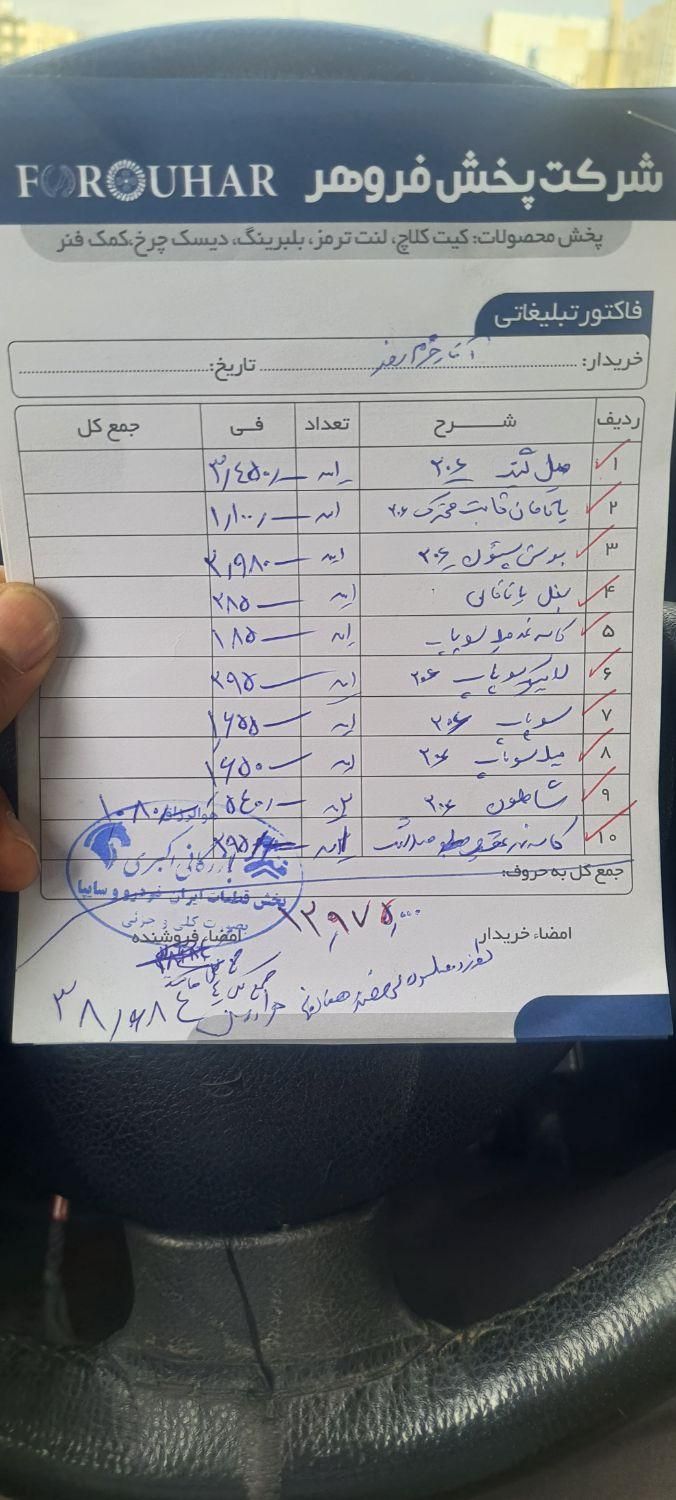 شرکت پخش فروهر FOROUHAR
پخش محصولات: کیت کلاچ، لنت ترمز، بلبرینگ، دیسک چرخ، کمک فنر
فاکتور تبلیغاتی
خریدار: تاریخ:
ردیف شرح تعداد فی جمع کل
۱ میل لنگ ۲۰۶ ۳٫۴۵۰
۲ یاتاقان ثابت متحرک ۲۰۶ ۱٫۱۰۰
۳ بوش پیستون ۲۰۶ ۲٫۹۸۰
۴ بغل یاتاقانی ۲۸۵
۵ کاسه نمد میل سوپاپ ۱۸۵
۶ لاستیک سوپاپ ۲۰۶ ۲۹۵
۷ سوپاپ ۲۰۶ ۱٫۶۵۵
۸ میل سوپاپ ۲۰۶ ۱٫۶۵۰
۹ شاطون ۲۰۶ ۵۴۰ ۱۰۸۰
۱۰ کاسه نمد عقب میل لنگ ۲۹۵
جمع کل به حروف:
بازرگانی اکبری
پخش قطعات ایران خودرو و سایپا
بصورت کلی و جزئی
۱۲٫۹۷۵٫۰۰۰
امضاء خریدار امضاء فروشنده
۳۸٫۶۸۴